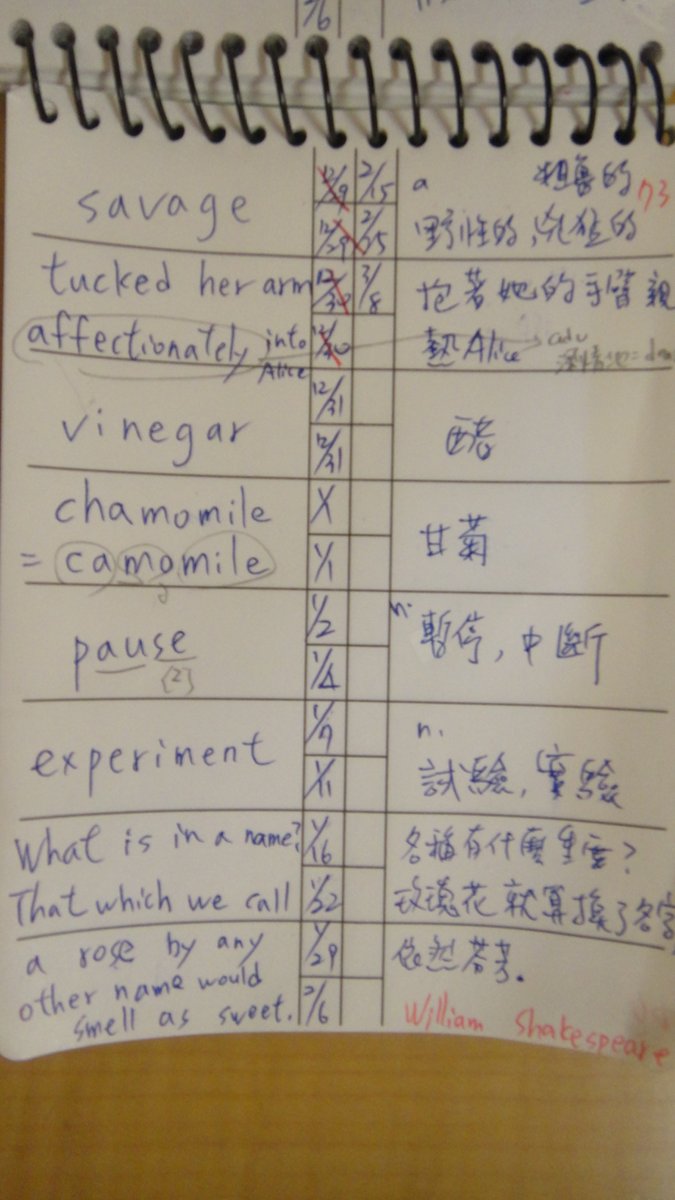 savage
12/9 2/15
12/29 2/25
a 粗魯的 п3
野性的,兇猛的
tucked her arm
affectionately into
Alice
12/30 3/8
抱著她的手臂親
熱Alice
adv
vinegar
12/31
12/31
醋
chamomile
= camomile
1/1
甘菊
pause
[z]
1/2
1/4
n. 暫停,中斷
experiment
1/7
1/11
n.
試驗,實驗
What is in a name?
That which we call
a rose by any
other name would
smell as sweet.
1/16
1/22
1/29
2/6
名稱有什麼重要?
玫瑰花就算換了名字
依然芬芳。
William Shakespeare